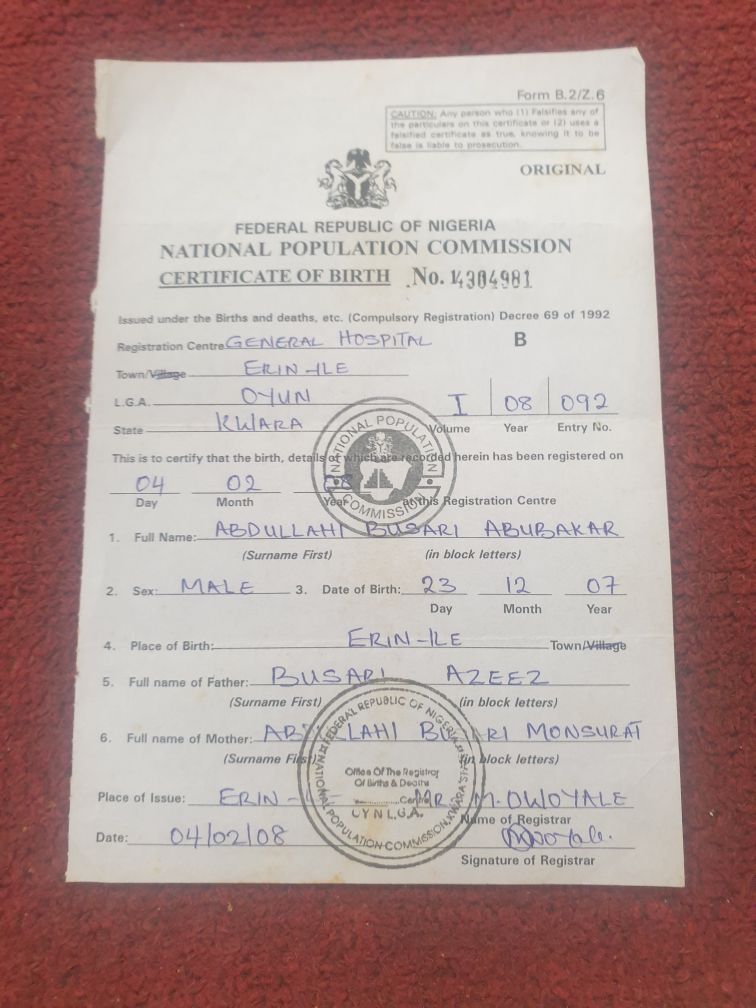 Form B.2/Z.6
CAUTION: Any person who (1) Falsifies any of
the particulars on this certificate or (2) uses a
falsified certificate as true, knowing it to be
false is liable to prosecution.
ORIGINAL
FEDERAL REPUBLIC OF NIGERIA
NATIONAL POPULATION COMMISSION
CERTIFICATE OF BIRTH No. 14304981
Issued under the Births and deaths, etc. (Compulsory Registration) Decree 69 of 1992
Registration Centre GENERAL HOSPITAL B
Town/Village ERIN-ILE
L.G.A. OYUN I 08 092
State KWARA Volume Year Entry No.
This is to certify that the birth, details of which are recorded herein has been registered on
04 02 08
Day Month Year at this Registration Centre
NATIONAL POPULATION COMMISSION
1. Full Name: ABDULLAHI BUSARI ABUBAKAR
(Surname First) (in block letters)
2. Sex: MALE 3. Date of Birth: 23 12 07
Day Month Year
4. Place of Birth: ERIN-ILE Town/Village
5. Full name of Father: BUSARI AZEEZ
(Surname First) (in block letters)
6. Full name of Mother: ABDULLAHI BUSARI MONSURAT
(Surname First) (in block letters)
FEDERAL REPUBLIC OF NIGERIA
NATIONAL POPULATION COMMISSION, KWARA STATE
Office Of The Registrar
Of Births & Deaths
Centre
OYUN L.G.A.
Place of Issue: ERIN-ILE MR. M. OWOYALE
Name of Registrar
Date: 04/02/08
Signature of Registrar